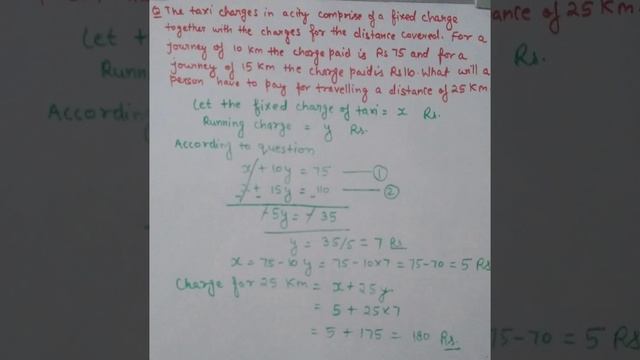 Q The taxi charges in a city comprise of a fixed charge
together with the charges for the distance covered. For a
journey of 10 km the charge paid is Rs 75 and for a
journey of 15 Km the charge paid is Rs 110. What will a
person have to pay for travelling a distance of 25 Km
Let the fixed charge of taxi = x Rs.
Running charge = y Rs.
According to question
x + 10y = 75 — ①
x + 15y = 110 — ②
- - -
-5y = -35
y = 35/5 = 7 Rs
x = 75-10y = 75-10×7 = 75-70 = 5 Rs
Charge for 25 Km = x + 25y
= 5 + 25×7
= 5 + 175 = 180 Rs.
ance of 25 Km
Let t
Rs.
Running
According
75-70 = 5 Rs